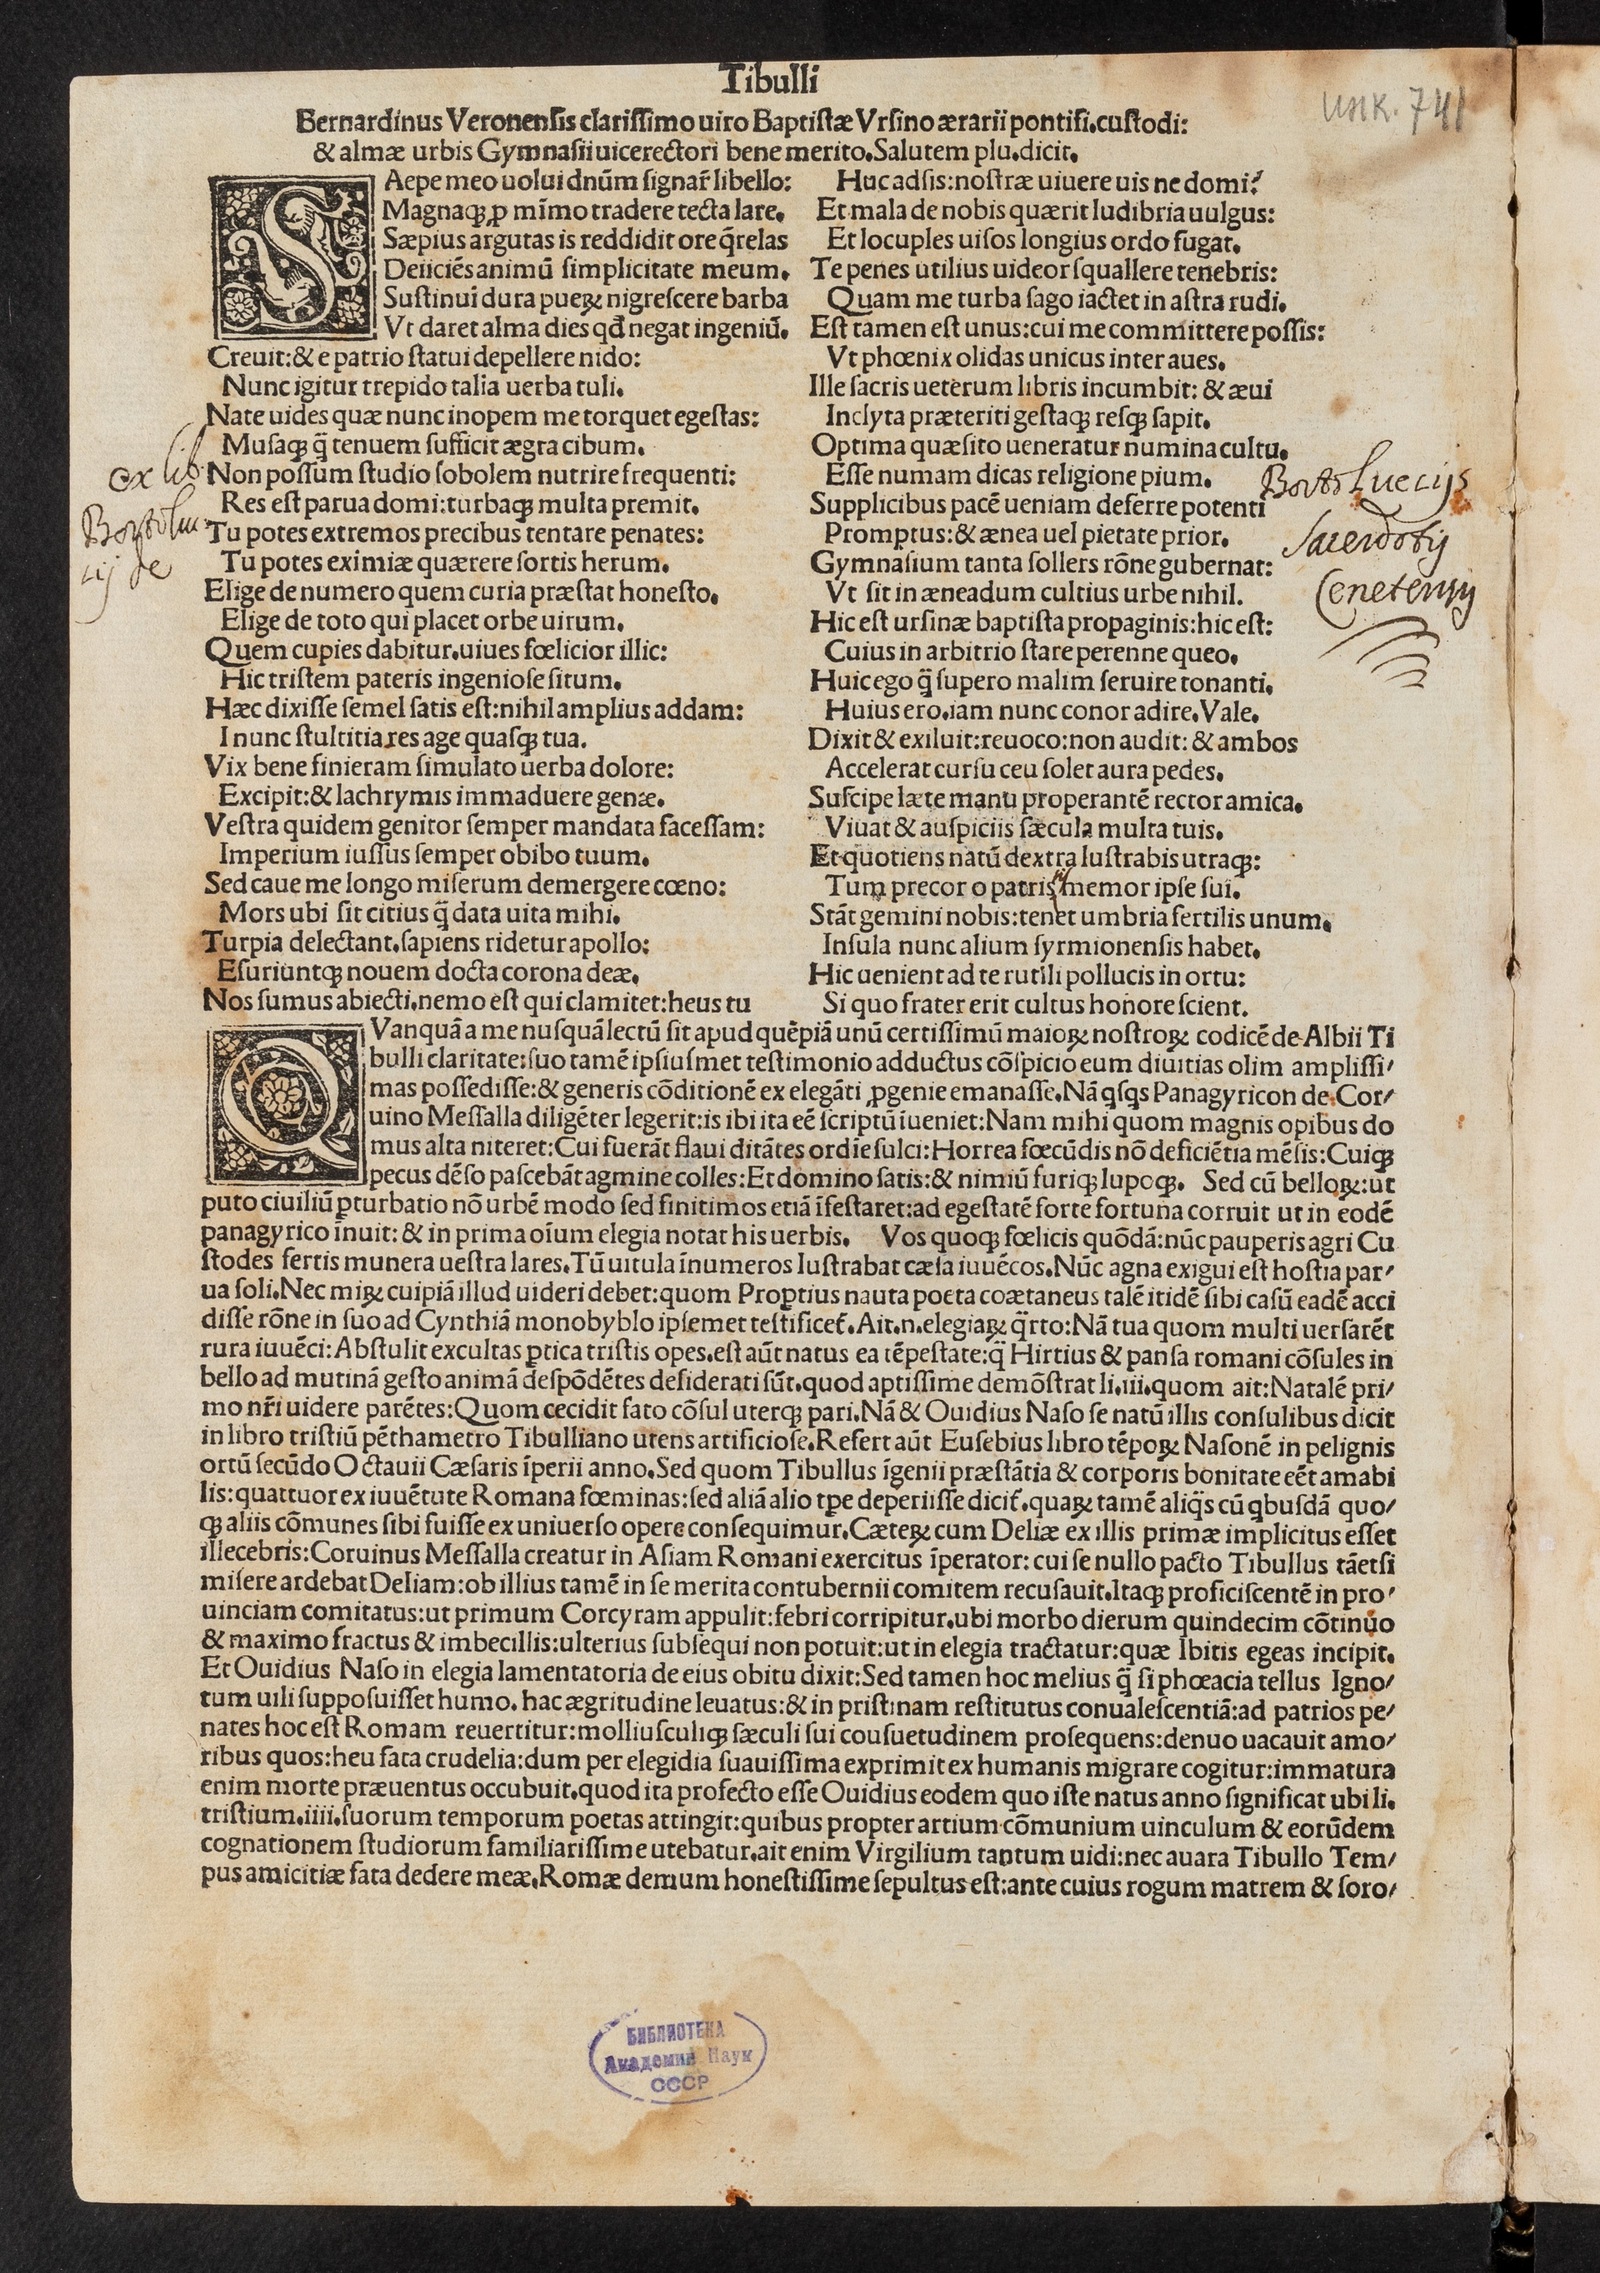 Tibulli
инк. 741
Bernardinus Veronensis clarissimo uiro Baptistæ Vrsino ærarii pontifi.custodi:
& almæ urbis Gymnasii uicerectori bene merito.Salutem plu.dicit.
SAepe meo uolui dnūm signar̄ libello:
Magnaqꝫ ꝓ mīmo tradere tecta lare.
Sæpius argutas is reddidit ore q̄relas
Deiiciēs animū simplicitate meum.
Sustinui dura pueꝝ nigrescere barba
Vt daret alma dies qđ negat ingeniū.
Creuit:& e patrio statui depellere nido:
Nunc igitur trepido talia uerba tuli.
Nate uides quæ nunc inopem me torquet egestas:
Musaqꝫ q̄ tenuem sufficit ægra cibum.
Non possum studio sobolem nutrire frequenti:
Res est parua domi:turbaqꝫ multa premit.
Tu potes extremos precibus tentare penates:
Tu potes eximiæ quærere sortis herum.
Elige de numero quem curia præstat honesto.
Elige de toto qui placet orbe uirum.
Quem cupies dabitur.uiues fœlicior illic:
Hic tristem pateris ingeniose situm.
Hæc dixisse semel satis est:nihil amplius addam:
I nunc stultitia res age quasqꝫ tua.
Vix bene finieram simulato uerba dolore:
Excipit:& lachrymis immaduere genæ.
Vestra quidem genitor semper mandata facessam:
Imperium iussus semper obibo tuum.
Sed caue me longo miserum demergere cœno:
Mors ubi sit citius q̄ data uita mihi.
Turpia delectant.sapiens ridetur apollo:
Esuriuntqꝫ nouem docta corona deæ.
Nos sumus abiecti.nemo est qui clamitet:heus tu
Huc adsis:nostræ uiuere uis ne domi?
Et mala de nobis quærit ludibria uulgus:
Et locuples uisos longius ordo fugat.
Te penes utilius uideor squallere tenebris:
Quam me turba sago iactet in astra rudi.
Est tamen est unus:cui me committere possis:
Vt phœnix olidas unicus inter aues.
Ille sacris ueterum libris incumbit: & æui
Inclyta præteriti gestaqꝫ resqꝫ sapit.
Optima quæsito ueneratur numina cultu.
Esse numam dicas religione pium.
Supplicibus pacē ueniam deferre potenti
Promptus:& ænea uel pietate prior.
Gymnasium tanta sollers rōne gubernat:
Vt sit in æneadum cultius urbe nihil.
Hic est ursinæ baptista propaginis:hic est:
Cuius in arbitrio stare perenne queo.
Huic ego q̄ supero malim seruire tonanti.
Huius ero.iam nunc conor adire.Vale.
Dixit & exiluit:reuoco:non audit: & ambos
Accelerat cursu ceu solet aura pedes.
Suscipe læte manu properantē rector amica.
Viuat & auspiciis sæcula multa tuis.
Et quotiens natū dextra lustrabis utraqꝫ:
Tum precor o patris sis memor ipse sui.
Stāt gemini nobis:tenet umbria fertilis unum.
Insula nunc alium syrmionensis habet.
Hic uenient ad te rutili pollucis in ortu:
Si quo frater erit cultus honore scient.
ex lib.
Bortoluc
cij de
Bortoluccijs
Sacerdotij
Cenetensij
QVanquā a me nusquā lectū sit apud quēpiā unū certissimū maioꝝ nostroꝝ codicē de Albii Ti
bulli claritate:suo tamē ipsiusmet testimonio adductus cōspicio eum diuitias olim amplissi/
mas possedisse:& generis cōditionē ex elegāti ꝓgenie emanasse.Nā qsqs Panagyricon de Cor/
uino Messalla diligēter legerit:is ibi ita eē scriptū iueniet:Nam mihi quom magnis opibus do
mus alta niteret:Cui fuerāt flaui ditātes ordīe sulci:Horrea fœcūdis nō deficiētia mēsis:Cuiqꝫ
pecus dēso pascebāt agmine colles:Et domino satis:& nimiū furiqꝫ lupoqꝫ. Sed cū belloꝝ:ut
puto ciuiliū ꝑturbatio nō urbē modo sed finitimos etiā īfestaret:ad egestatē forte fortuna corruit ut in eodē
panagyrico īnuit: & in prima oīum elegia notat his uerbis. Vos quoqꝫ fœlicis quōdā:nūc pauperis agri Cu
stodes fertis munera uestra lares.Tū uitula īnumeros lustrabat cæsa iuuēcos.Nūc agna exigui est hostia par/
ua soli.Nec miꝝ cuipiā illud uideri debet:quom Proꝑtius nauta poeta coætaneus talē itidē sibi casū eadē acci
disse rōne in suo ad Cynthiā monobyblo ipsemet testificet̄.Ait.n.elegiaꝝ q̄rto:Nā tua quom multi uersarēt
rura iuuēci:Abstulit excultas ꝑtica tristis opes.est aūt natus ea tēpestate:q̄ Hirtius & pansa romani cōsules in
bello ad mutinā gesto animā despōdētes desiderati sūt.quod aptissime demōstrat li.iii.quom ait:Natalē pri/
mo nr̄i uidere parētes:Quom cecidit fato cōsul uterqꝫ pari.Nā & Ouidius Naso se natū illis consulibus dicit
in libro tristiū pēthametro Tibulliano utens artificiose.Refert aūt Eusebius libro tēpoꝝ Nasonē in pelignis
ortū secūdo Octauii Cæsaris īperii anno.Sed quom Tibullus īgenii præstātia & corporis bonitate eēt amabi
lis:quattuor ex iuuētute Romana fœminas:sed aliā alio tꝑe deperiisse dicit̄.quaꝝ tamē aliq̄s cū qbusdā quo/
qꝫ aliis cōmunes sibi fuisse ex uniuerso opere consequimur.Cæteꝝ cum Deliæ ex illis primæ implicitus esset
illecebris:Coruinus Messalla creatur in Asiam Romani exercitus īperator: cui se nullo pacto Tibullus tāetsi
misere ardebat Deliam:ob illius tamē in se merita contubernii comitem recusauit.Itaqꝫ proficiscentē in pro/
uinciam comitatus:ut primum Corcyram appulit:febri corripitur.ubi morbo dierum quindecim cōtinuo
& maximo fractus & imbecillis:ulterius subsequi non potuit:ut in elegia tractatur:quæ Ibitis egeas incipit.
Et Ouidius Naso in elegia lamentatoria de eius obitu dixit:Sed tamen hoc melius q̄ si phœacia tellus Igno/
tum uili supposuisset humo. hac ægritudine leuatus:& in pristinam restitutus conualescentiā:ad patrios pe/
nates hoc est Romam reuertitur:molliusculiqꝫ sæculi sui cousuetudinem prosequens:denuo uacauit amo/
ribus quos:heu fata crudelia:dum per elegidia suauissima exprimit ex humanis migrare cogitur:immatura
enim morte præuentus occubuit.quod ita profecto esse Ouidius eodem quo iste natus anno significat ubi li.
tristium.iiii.suorum temporum poetas attingit:quibus propter artium cōmunium uinculum & eorūdem
cognationem studiorum familiarissime utebatur.ait enim Virgilium tantum uidi:nec auara Tibullo Tem/
pus amicitiæ fata dedere meæ.Romæ demum honestissime sepultus est:ante cuius rogum matrem & soro/
БИБЛИОТЕКА
Академии Наук
СССР